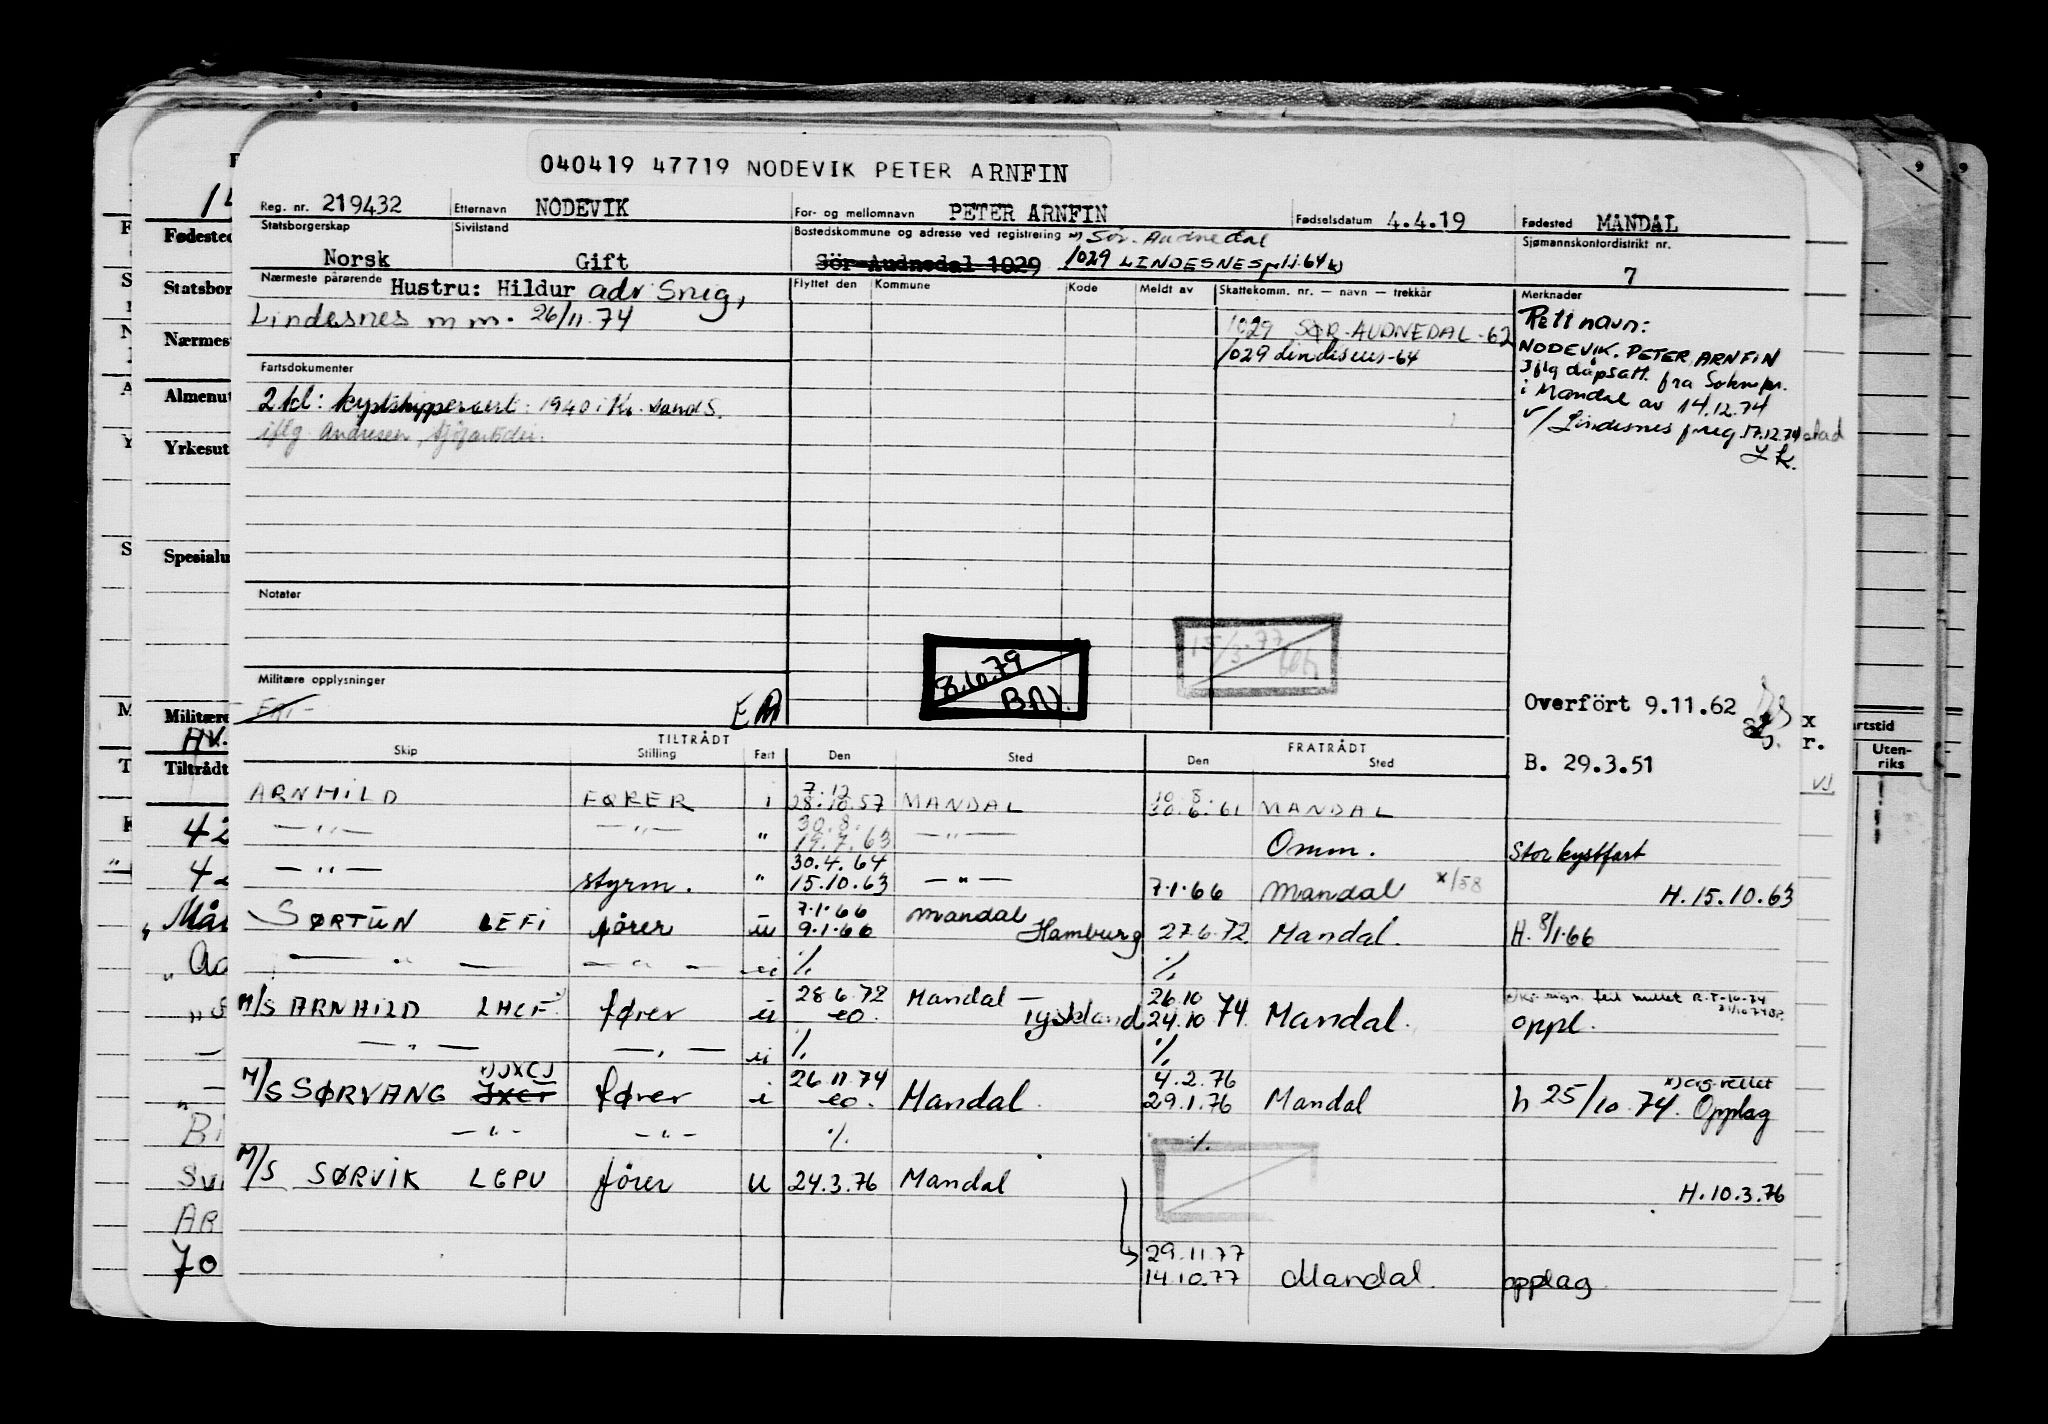 040419 47719 NODEVIK PETER ARNFIN
Reg. nr. 219432 Etternavn NODEVIK For- og mellomnavn PETER ARNFIN Fødselsdatum 4.4.19 Fødested MANDAL
Statsborgerskap Norsk Sivilstand Gift Bostedskommune og adresse ved registrering x) Sør-Audnedal Sjømannskontordistrikt nr. 7
Sör-Audnedal 1029 1029 LINDESNES 1.1.64
Nærmeste pårørende Hustru: Hildur adr Snig,
Lindesnes m m. 26/11.74
Flyttet den Kommune Kode Meldt av Skattekomm. nr. — navn — trekkår
1029 SØR-AUDNEDAL-62
1029 Lindesnes-64
Merknader
Rett navn:
NODEVIK. PETER ARNFIN
Iflg dåpsatt. fra Soknepr.
i Mandal av 14.12.74
v/ Lindesnes freg 17.12.74
Fartsdokumenter
2 kl: kystskippersert: 1940 i Kr. sand S.
iflg. Andresen, Sjøfartsdir.
Notater
Militære opplysninger
8.10.79
BN.
15/3-77
Overfört 9.11.62
B. 29.3.51
TILTRÅDT FRATRÅDT
Skip Stilling Fart Den Sted Den Sted
ARNHILD FØRER i 7.12 28.10.57 MANDAL 10.8. 30.6.61 MANDAL
—"— —"— " 30.8. 19.7.63 —"— Omm. Stor kystfart
—"— styrm. " 30.4.64 15.10.63 —"— 7.1.66 Mandal x/58 H.15.10.63
SØRTUN LEFI fører u 7.1.66 9.1.66 Mandal Hamburg 27.6.72 Mandal. H. 8/1.66
—"— —"— ./. ./.
M/S ARNHILD LHCF fører u 28.6.72 eo. Mandal — Tyskland 26.10 24.10 74 Mandal. oppl.
—"— —"— ./. ./.
M/S SØRVANG JXCJ fører i 26.11.74 eo. Mandal 4.2.76 29.1.76 Mandal h 25/10.74. Opplag
—"— —"— ./. ./.
M/S SØRVIK LGPU fører u 24.3.76 Mandal H.10.3.76
29.11.77
14.10.77 Mandal. opplag
Fødested
Statsbor
Nærmest
Almenut
Yrkesut
Spesialu
Militære
HV.
Tiltrådt
42
70
Uten-
riks